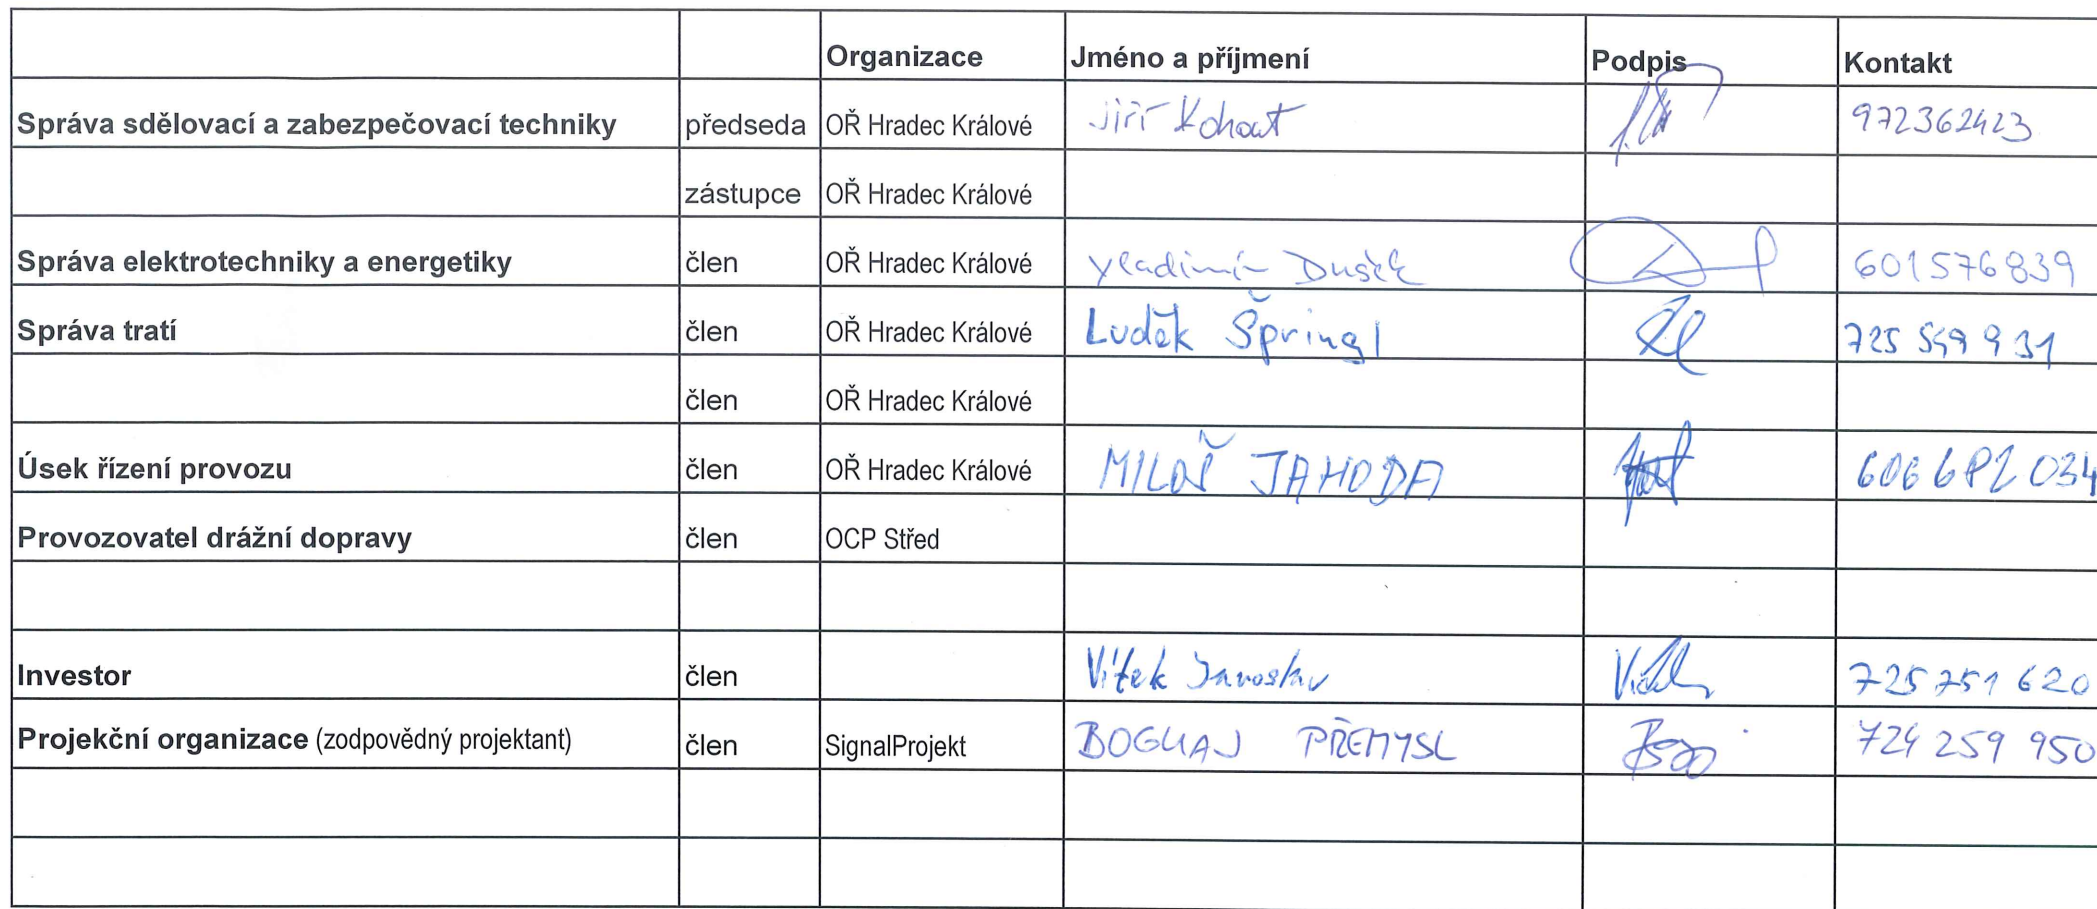 Organizace Jméno a příjmení Podpis Kontakt
Správa sdělovací a zabezpečovací techniky předseda OŘ Hradec Králové Jiří Kohout 972362423
zástupce OŘ Hradec Králové
Správa elektrotechniky a energetiky člen OŘ Hradec Králové Vladimír Dušek 601576839
Správa tratí člen OŘ Hradec Králové Luděk Špringl 725 549 931
člen OŘ Hradec Králové
Úsek řízení provozu člen OŘ Hradec Králové MILOŠ JAHODA 606 682 034
Provozovatel drážní dopravy člen OCP Střed
Investor člen Vítek Jaroslav 725 751 620
Projekční organizace (zodpovědný projektant) člen SignalProjekt PŘEMYSL 724 259 950